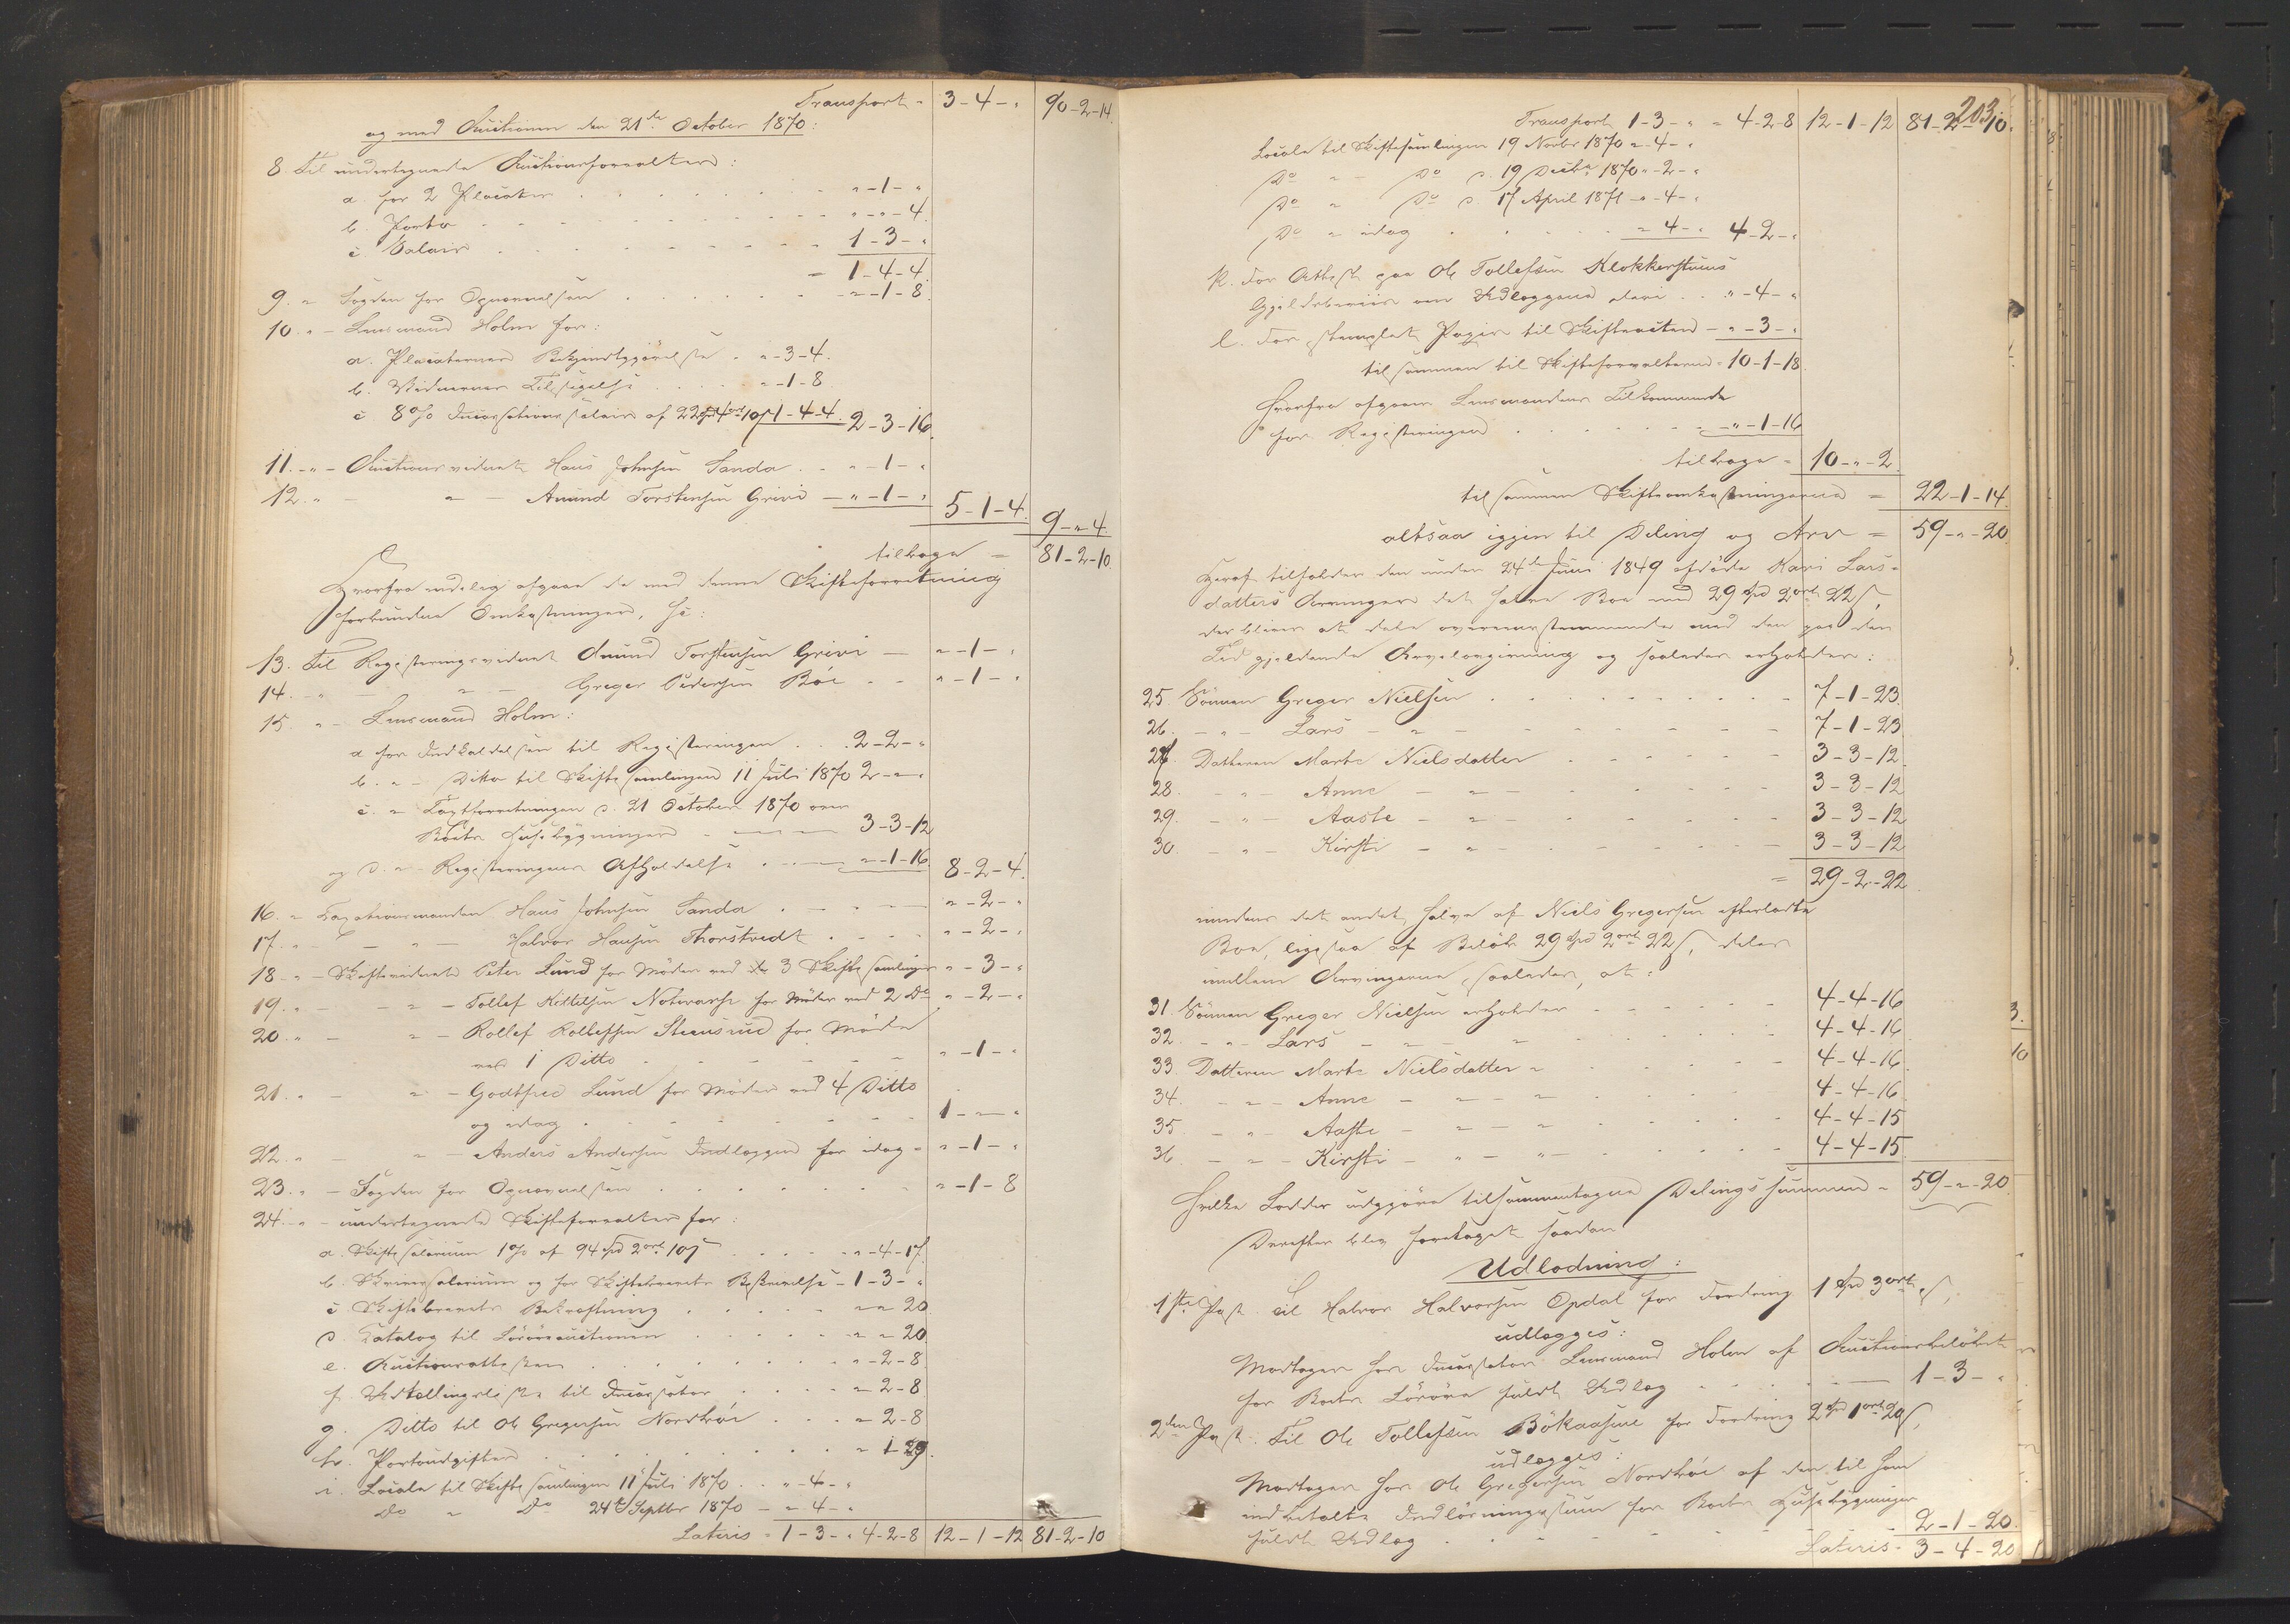 Transport - 3-4-" 90-2-14.
og med Auctionen den 21de October 1870:
8. Til undertegnede Auctionsforvalter:
a. for 2 Placater " -1- "
b. Porto " - " -4.
c. Salair 1-3- "
= 1-4-4.
9. " Fogden for Opnævnelsen " -1-8.
10. " - Lensmand Holm for:
a. Placaternes Bekjendtgjørelse " -3-4.
b. Vidnernes Tilsigelse " -1-8
c. 8 % Incassationssalair af 22 Spd 4 ort 10 s 1-4-4. 2-3-16.
11. - " - Auctionsvidnet Hans Johnsen Sanda " -1- "
12. " - " - Amund Torstensen Grivi - " -1- " 5-1-4. 9- " -4.
tilbage = 81-2-10.
Hvorfra endelig afgaae de med denne Skifteforretning
forbundne Omkostninger, så:
13. Til Registreringsvidnet Amund Torstensen Grivi - " -1- "
14. - " - " - Greger Pedersen Böe " -1- "
15. " - Lensmand Holm:
a for Indkaldelsen til Registreringen 2-2- "
b. " - Dito til Skiftesamlingen 11 Juli 1870 2- " - "
c. " Taxtforretningen d. 21 October 1870 over
Boets Husebygninger 3-3-12
og d. " - Registreringens Afholdelse " -1-16. 8-2-4.
16. " Taxationsmanden Hans Johnsen Sanda " -2- "
17. " - " - Halvor Hansen Thorstvedt " -2- "
18 - " - Skiftevidnet Peter Lund for Möder ved 3 Skiftesamlinger " -3- "
19. " - " - Tollef Kittilsen Notevarp for Möder ved 2 Do " -2- "
20. " - " - Rollef Rollefsen Steensrud for Möde
ved 1 Ditto " -1- "
21. " - " - Godtfred Lund for Möder ved 4 Ditto
og idag 1- " - "
22. " - " - Anders Andersen Indlæggen for idag - " -1- "
23. " - Fogden for Opnævnelsen " -1-8
24. " - undertegnede Skifteforvalter for:
a. Skiftesalarium 1 % af 94 Spd 2 ort 10 s " -4-17.
b. Skriversalarium og for Skiftebrevets Beskrivelse - 1-3- "
c. Skiftebrevets Bekræftning " " 20
d. Katalog til Lösöreauctionen " " 20
e. Auctionsattesten " -2-8
f. Udtællingsliste til Incassator " 2-8
g. Ditto til Ole Gregersen Nordböe " 2-8
h. Portoudgifter " 1
i. Locale til Skiftesamlingen 11 Juli 1870 " -4- "
Do " Do 24de Septbr 1870 - " -4- "
Lateris = 1-3- " 4-2-8 12-1-12 81-2-10
203.
Transport 1-3- " = 4-2-8 12-1-12 81-2-10.
Locale til Skiftesamlingen 19 Novbr 1870 " -4- "
Do " - Do d. 19 Decbr 1870 " -2- "
Do " Do d. 17 April 1871 " -4- "
Do " idag " 4- " 4-2- "
k. For Attest paa Ole Tollefsen Klokkerstuens
Gjældsbeviis om Udlæggene deri " -4- "
l. For stemplet Papir til Skifteacten - " -3- "
tilsammen til Skifteforvalteren = 10-1-18.
Hvorfra afgaaer Lensmandens Tilkommende
for Registreringen - " -1-16
tilbage = 10- " -2
tilsammen Skifteomkostningerne = 22-1-14.
altsaa igjen til Deling og Arv = 59- " -20
Heraf tilfalder den under 24de Juni 1849 afdöde Kari Lars-
datters Arvinger det halve Boe med 29 Spd 2 ort 22 s,
der bliver at dele overensstemmende med den paa den
Tid gjældende Arvelovgivning og saaledes erholder:
25. Sönnen Greger Nielsen 7-1-23.
26. - " - Lars - " - 7-1-23
27. Datteren Marte Nielsdatter 3-3-12.
28. - " - Anne - " - 3-3-12
29. - " - Aaste - " - 3-3-12
30. - " - Kirsti - " - 3-3-12
= 29-2-22
imedens det andet halve af Niels Gregersens efterladte
Boe, ligesaa af Belöb 29 Spd 2 ort 22 s, deles
imellem Arvingerne saaledes, at:
31. Sönnen Greger Nielsen erholder 4-4-16
32. - " - Lars - " - " 4-4-16
33. Datteren Marte Nielsdatter " 4-4-16
34. - " - Anne - " - " 4-4-16
35. - " - Aaste - " - " 4-4-15
36. - " - Kirsti - " - " 4-4-15
Hvilke Lodder udgjöre tilsammentagne Delingssummen = 59- " -20
Derefter blev foretaget saadan
Udlodning:
1ste Post. Til Halvor Halvorsen Opdal for Fordring 1 Spd 3 ort " s,
udlægges:
Modtager hos Incassator Lensmand Holm af Auctionsbelöbet
for Boets Lösöre fuldt Udlæg 1-3- "
2den Post. Til Ole Tollefsen Bökaasene for Fordring 2 Spd 1 ort 20 s,
udlægges:
Modtager hos Ole Gregersen Nordböe af den til ham
indbetalte Indlösningssum for Boets Husebygninger
fuldt Udlæg 2-1-20.
Lateris - 3-4-20